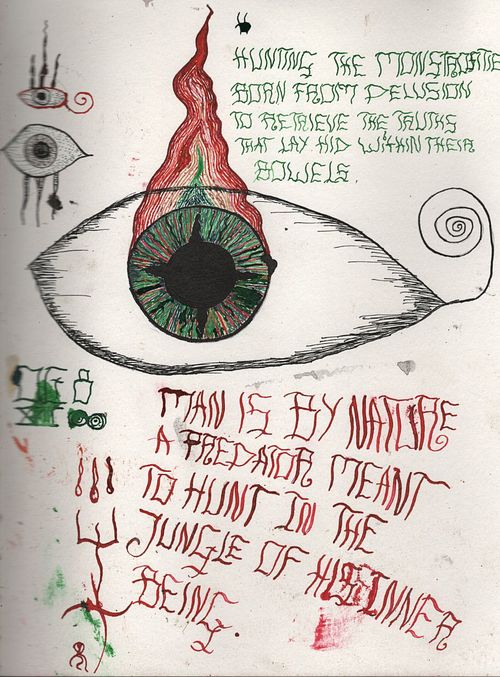 HUNTING THE MONSTROSITIES
BORN FROM DELUSION
TO RETRIEVE THE TRUTHS
THAT LAY HID WITHIN THEIR
BOWELS.
MAN IS BY NATURE
A PREDATOR MEANT
TO HUNT IN THE
JUNGLE OF HIS INNER
BEING